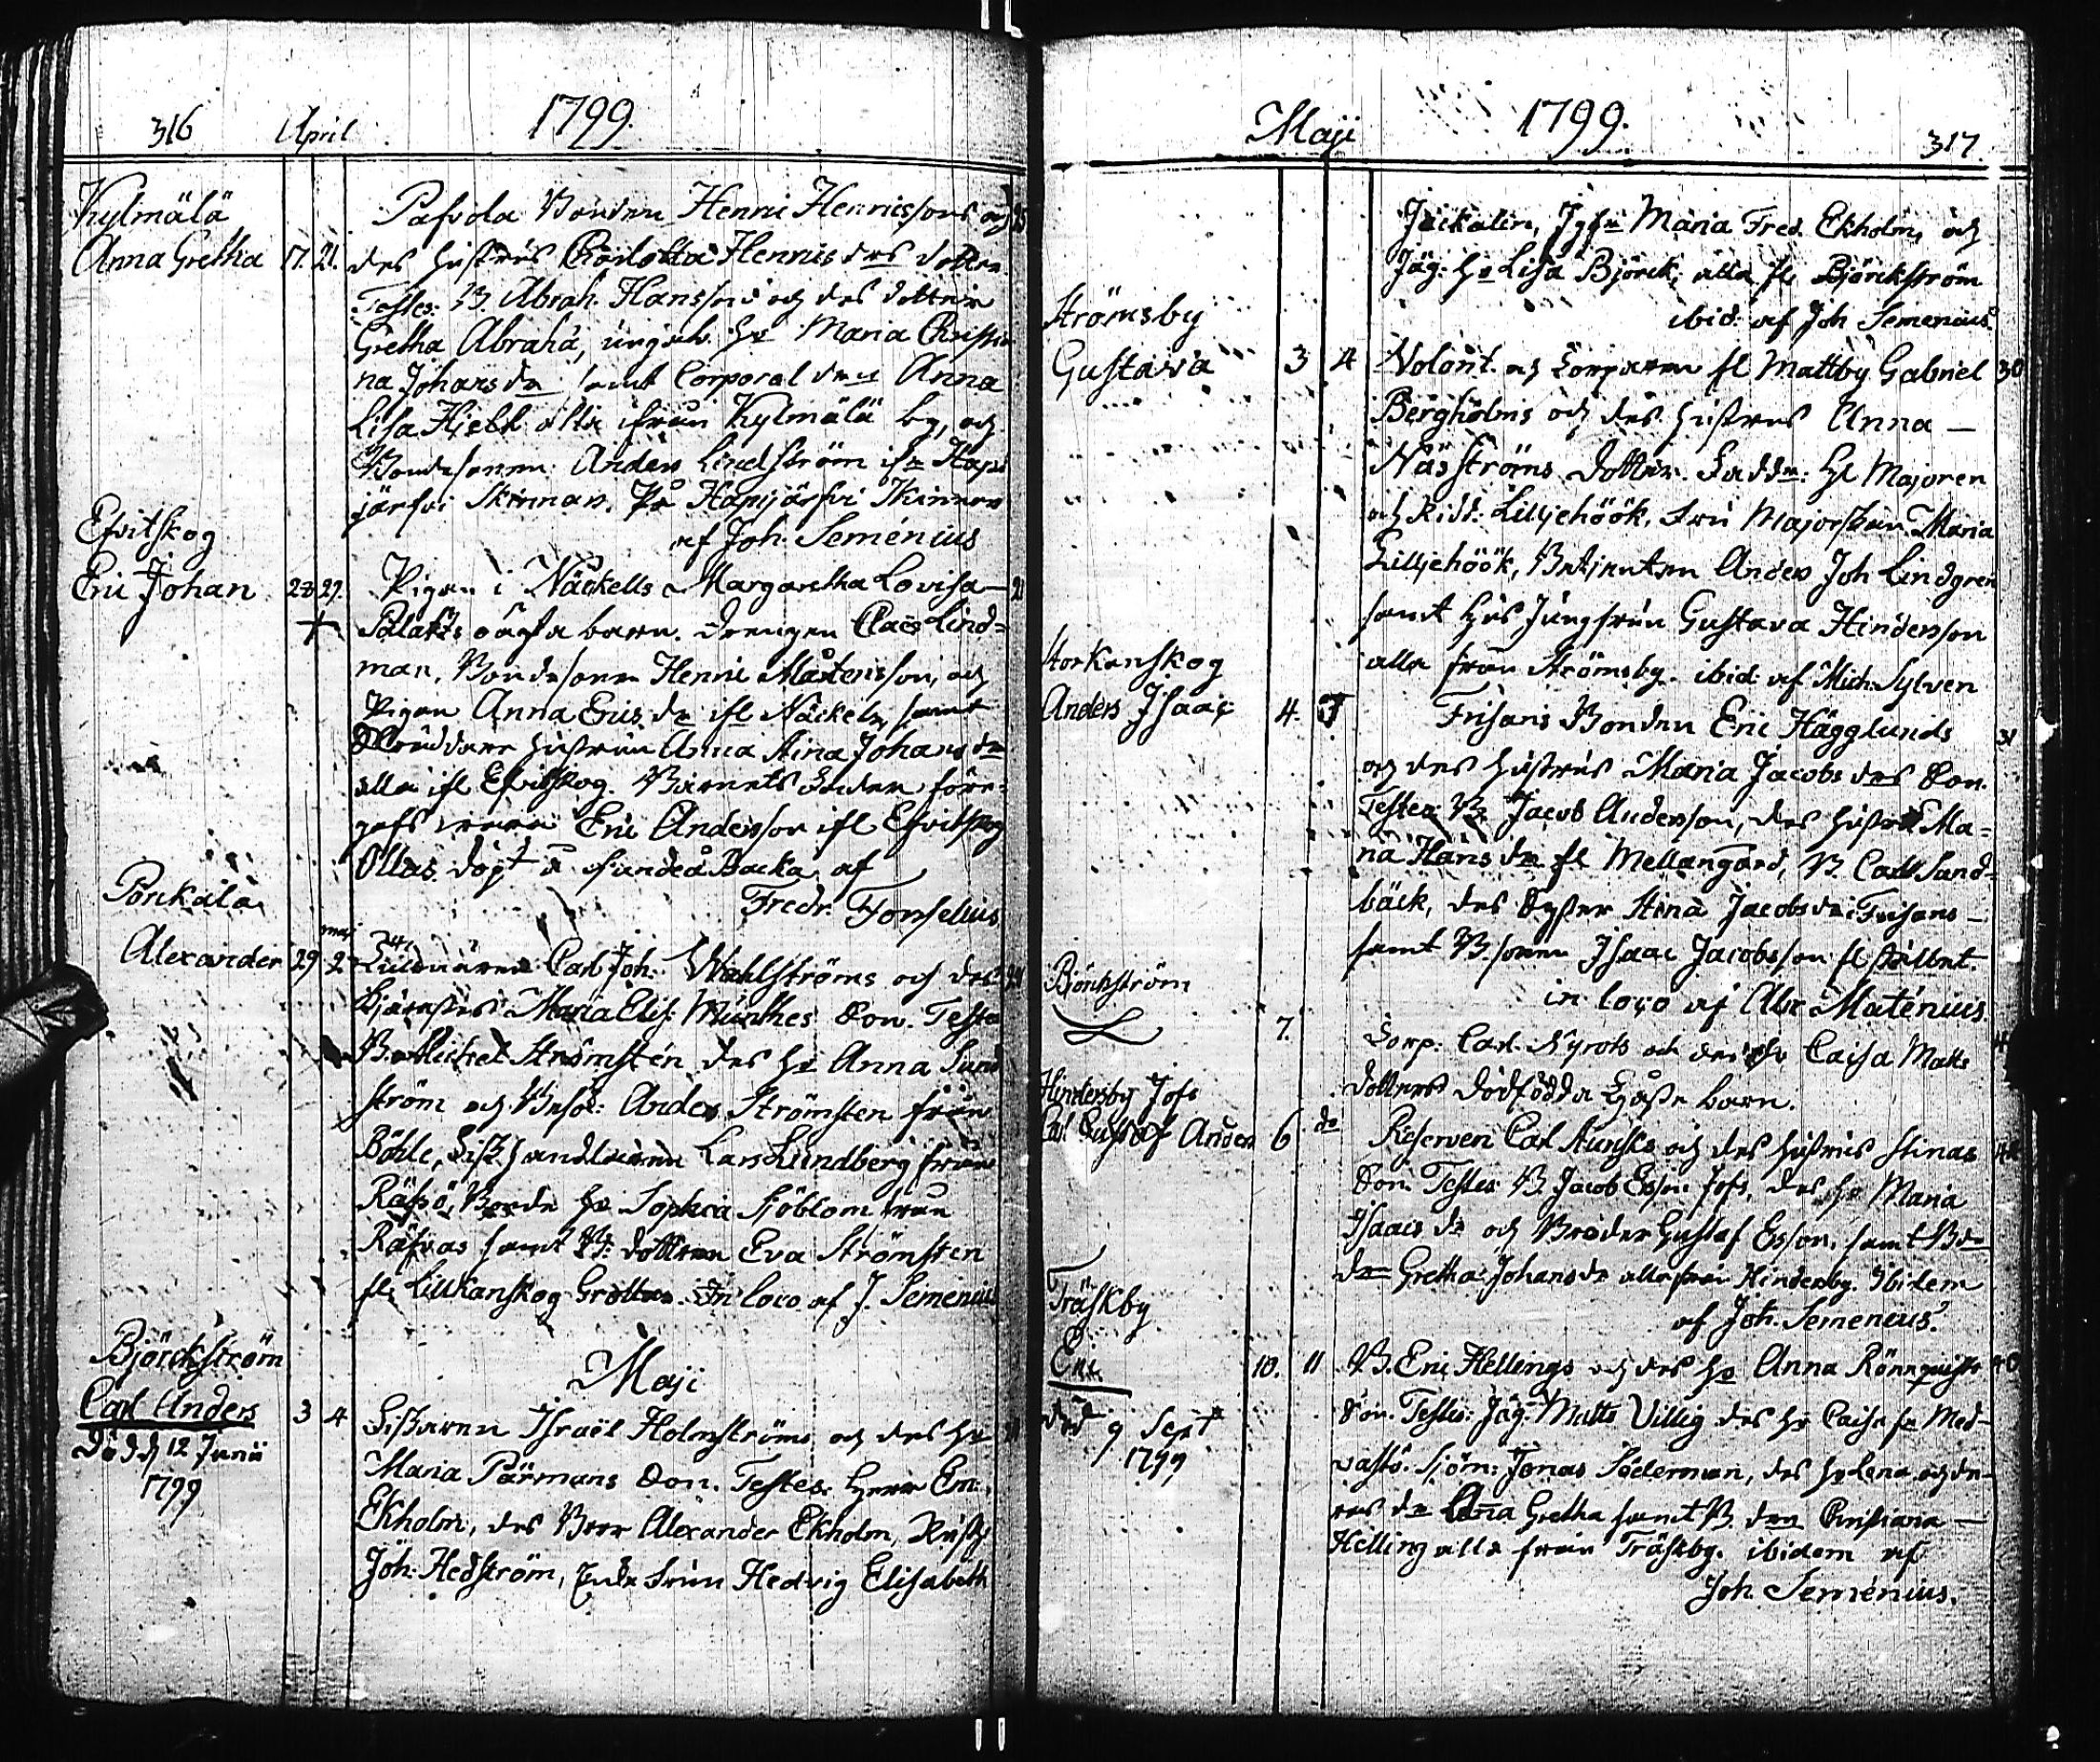 316 April 1799.
Kylmälä
Anna Gretha 17. 21.
Bonden Henric Henricssons och
des hustrus Charlotta Henricsdrs dotter
Testes: B. Abrah. Hansson och des dotter
Gretha Abrah:, ungah. h: Maria Christi
na Johansdr samt Corporal Anna
Lisa Hjelt alla ifrån Kylmälä by, och
Bondesonen Anders Lindström
järfvi Skinnars. På Hapijärfvi Skinnars
af Joh. Seménius
Esvitskog
Eric Johan 28 29.
Pigan i Näckells Margaretha Lovisa
oägta barn. Drengen Claës Lind=
man, Bondesonen Henric Mårtensson, och
Pigan Anna Erics dr Näckels samt
hustrun Anna Stina Johans dr
alla Esvitskog. Barnets fader före-
gafs vara Eric Andersson Esvitskog
Ollas. döpt å Sundsbacka af
Fredr. Forsellius
Porkala
Alexander 29 maj 2.
Carl Joh: Wahlströms och des
Maria Elis: Münthes Son. Testes
B. Michel Strömsten des h: Anna Sund
ström och Anders Strömsten från
Böhle, Fisk handlaren Lars Lundberg från
Räfsö, Bonde h: Sophia Sjöblom från
Räfsas samt B: dottren Eva Strömsten
fr. Lillkanskog Grottas. In loco af J. Semenius
Maji
Björckström
Carl Anders 3 4
Död d 12 Junii
1799
Fiskaren Israël Holmströms och des h:
Maria Pärmans Son. Testes: Herr Em:
Ekholm, des Bror Alexander Ekholm,
Joh: Hedström, Hedvig Elisabeth
Maji 1799. 317.
Maria Fred. Ekholm, och
Jäg: h: Lisa Björck, alla fr. Björckström
ibid. af Joh Semenius
Strömsby
Gustava 3 4 30
Volont. och Torparen fr Mattby Gabriel
Bergholms och des hustrus Anna —
Näsströms dotter. Fadd: H: Majoren
och Ridd: Lilljehöök, Fru Majorskan Maria
Lilljehöök, Betjenten Anders Joh Lindgren
samt Hus Jungfrun Gustava Hindersson
alla från Strömsby. ibid. af Mich: Sylven
Storkanskog
Anders Isaac 4. 5 31
Frisans Bonden Eric Hägglunds
och des hustrus Maria Jacobs drs Son.
Testes B Jacob Andersson, des hustru Ma=
ria Hans dr fr Mellangård, B. Carl Sand-
bäck, des Syster Stina Jacobsdr Frisans —
samt B. sonen Isaac Jacobsson fr
in loco af Abr Maténius.
Björckström
7.
Torp: Carl Nyrots och des h: Caisa Matts
dotters dödfödda barn.
Hindersby Jofs
Carl Gustaf Anders 6 do
Reserven Carl Stunsks och des hustrus Stinas
Son. Testes B. Jacob Ersson Jofs, des h: Maria
Isaacs dr och Broder Gustaf Ersson, samt B
Gretha Johansdr alla från Hindersby. Ibidem
af Joh. Semenius.
Träskby
Eric 10. 11 40
död 9 Sept
1799
B. Eric Hellings och des h: Anna Rönnquists
Son. Testes: Jäg: Matts Villig des h: Caisa fr Med-
vasts. Sjöm: Jonas Söderman, des h: Lena och de-
ras dr Anna Gretha samt B. Christiana —
Helling alla från Träskby. ibidem af
Joh. Seménius.